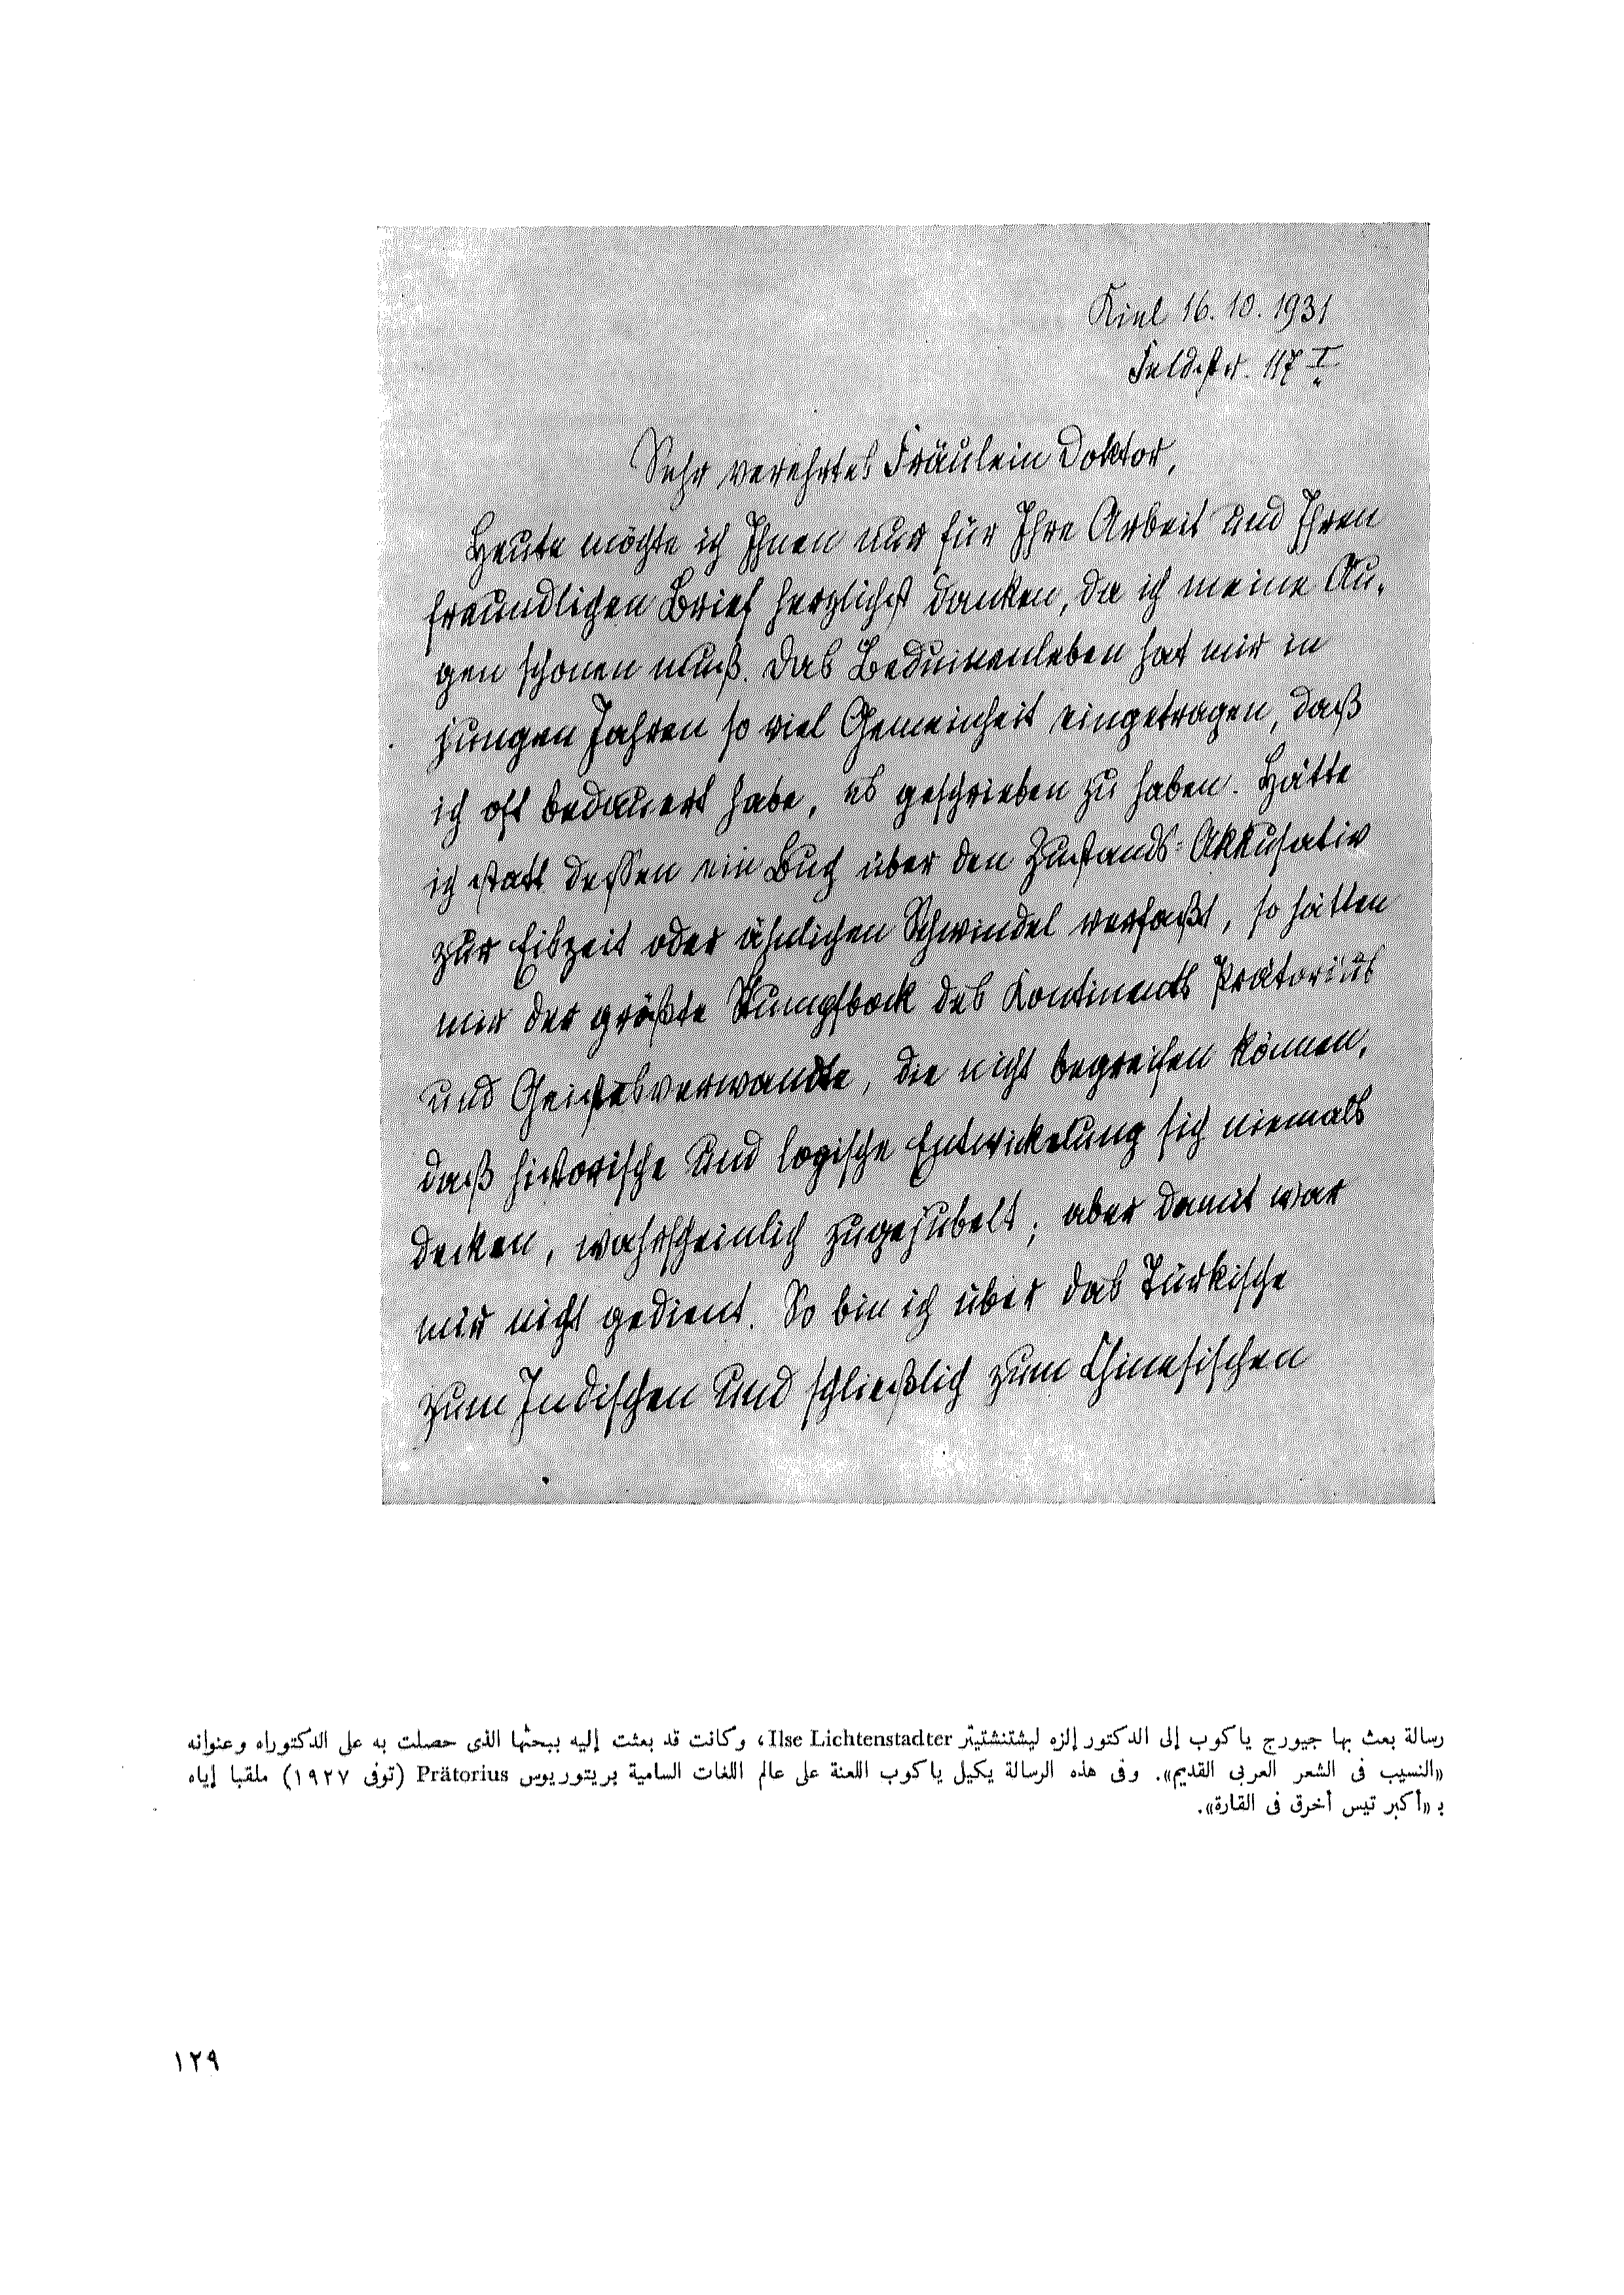 Kiel 16. 10. 1931
Feldstr. 117 I
Sehr verehrtes Fräulein Doktor,
Heute möchte ich Ihnen nur für Ihre Arbeit und Ihren
freundlichen Brief herzlichst danken, da ich meine Au-
gen schonen muß. Das Beduinenleben hat mir in
jungen Jahren so viel Gemeinheit eingetragen, daß
ich oft bedauert habe, es geschrieben zu haben. Hätte
ich statt dessen ein Buch über den Zustands-Akkusativ
zur Eiszeit oder ähnlichen Schwindel verfaßt, so hätten
mir der größte Stumpfbock des Kontinents Prätorius
und Geistesverwandte, die nicht begreifen können,
daß historische und logische Entwickelung sich niemals
decken, wahrscheinlich zugejubelt; aber damit war
mir nicht gedient. So bin ich über das Türkische
zum Indischen und schließlich zum Chinesischen
رسالة بعث بها جيورج ياكوب إلى الدكتور إلزه ليشتنشتيتر Ilse Lichtenstadter، وكانت قد بعثت إليه ببحثها الذى حصلت به على الدكتوراه وعنوانه
«النسيب فى الشعر العربى القديم». وفى هذه الرسالة يكيل ياكوب اللعنة على عالم اللغات السامية بريتوريوس Prätorius (توفى ١٩٢٧) ملقبا إياه
بـ «أكبر تيس أخرق فى القارة».
١٢٩